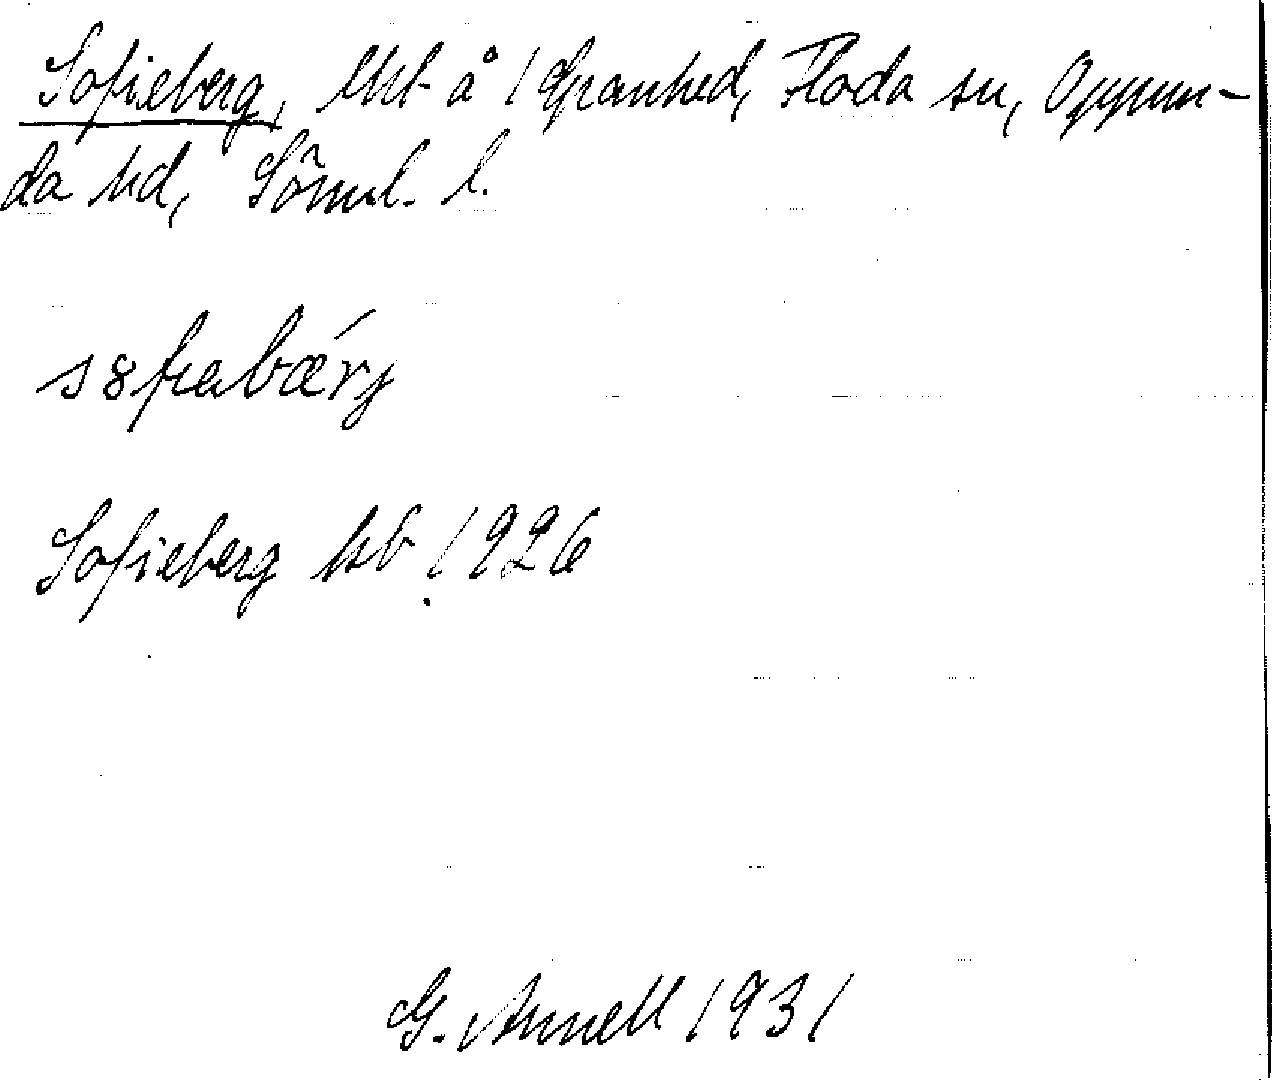 Sofieberg, lht å 1 Granhed, Floda sn, Oppun-
da hd, Söml. l.
s8fiabärj
Sofieberg kb 1926
G. Annell 1931